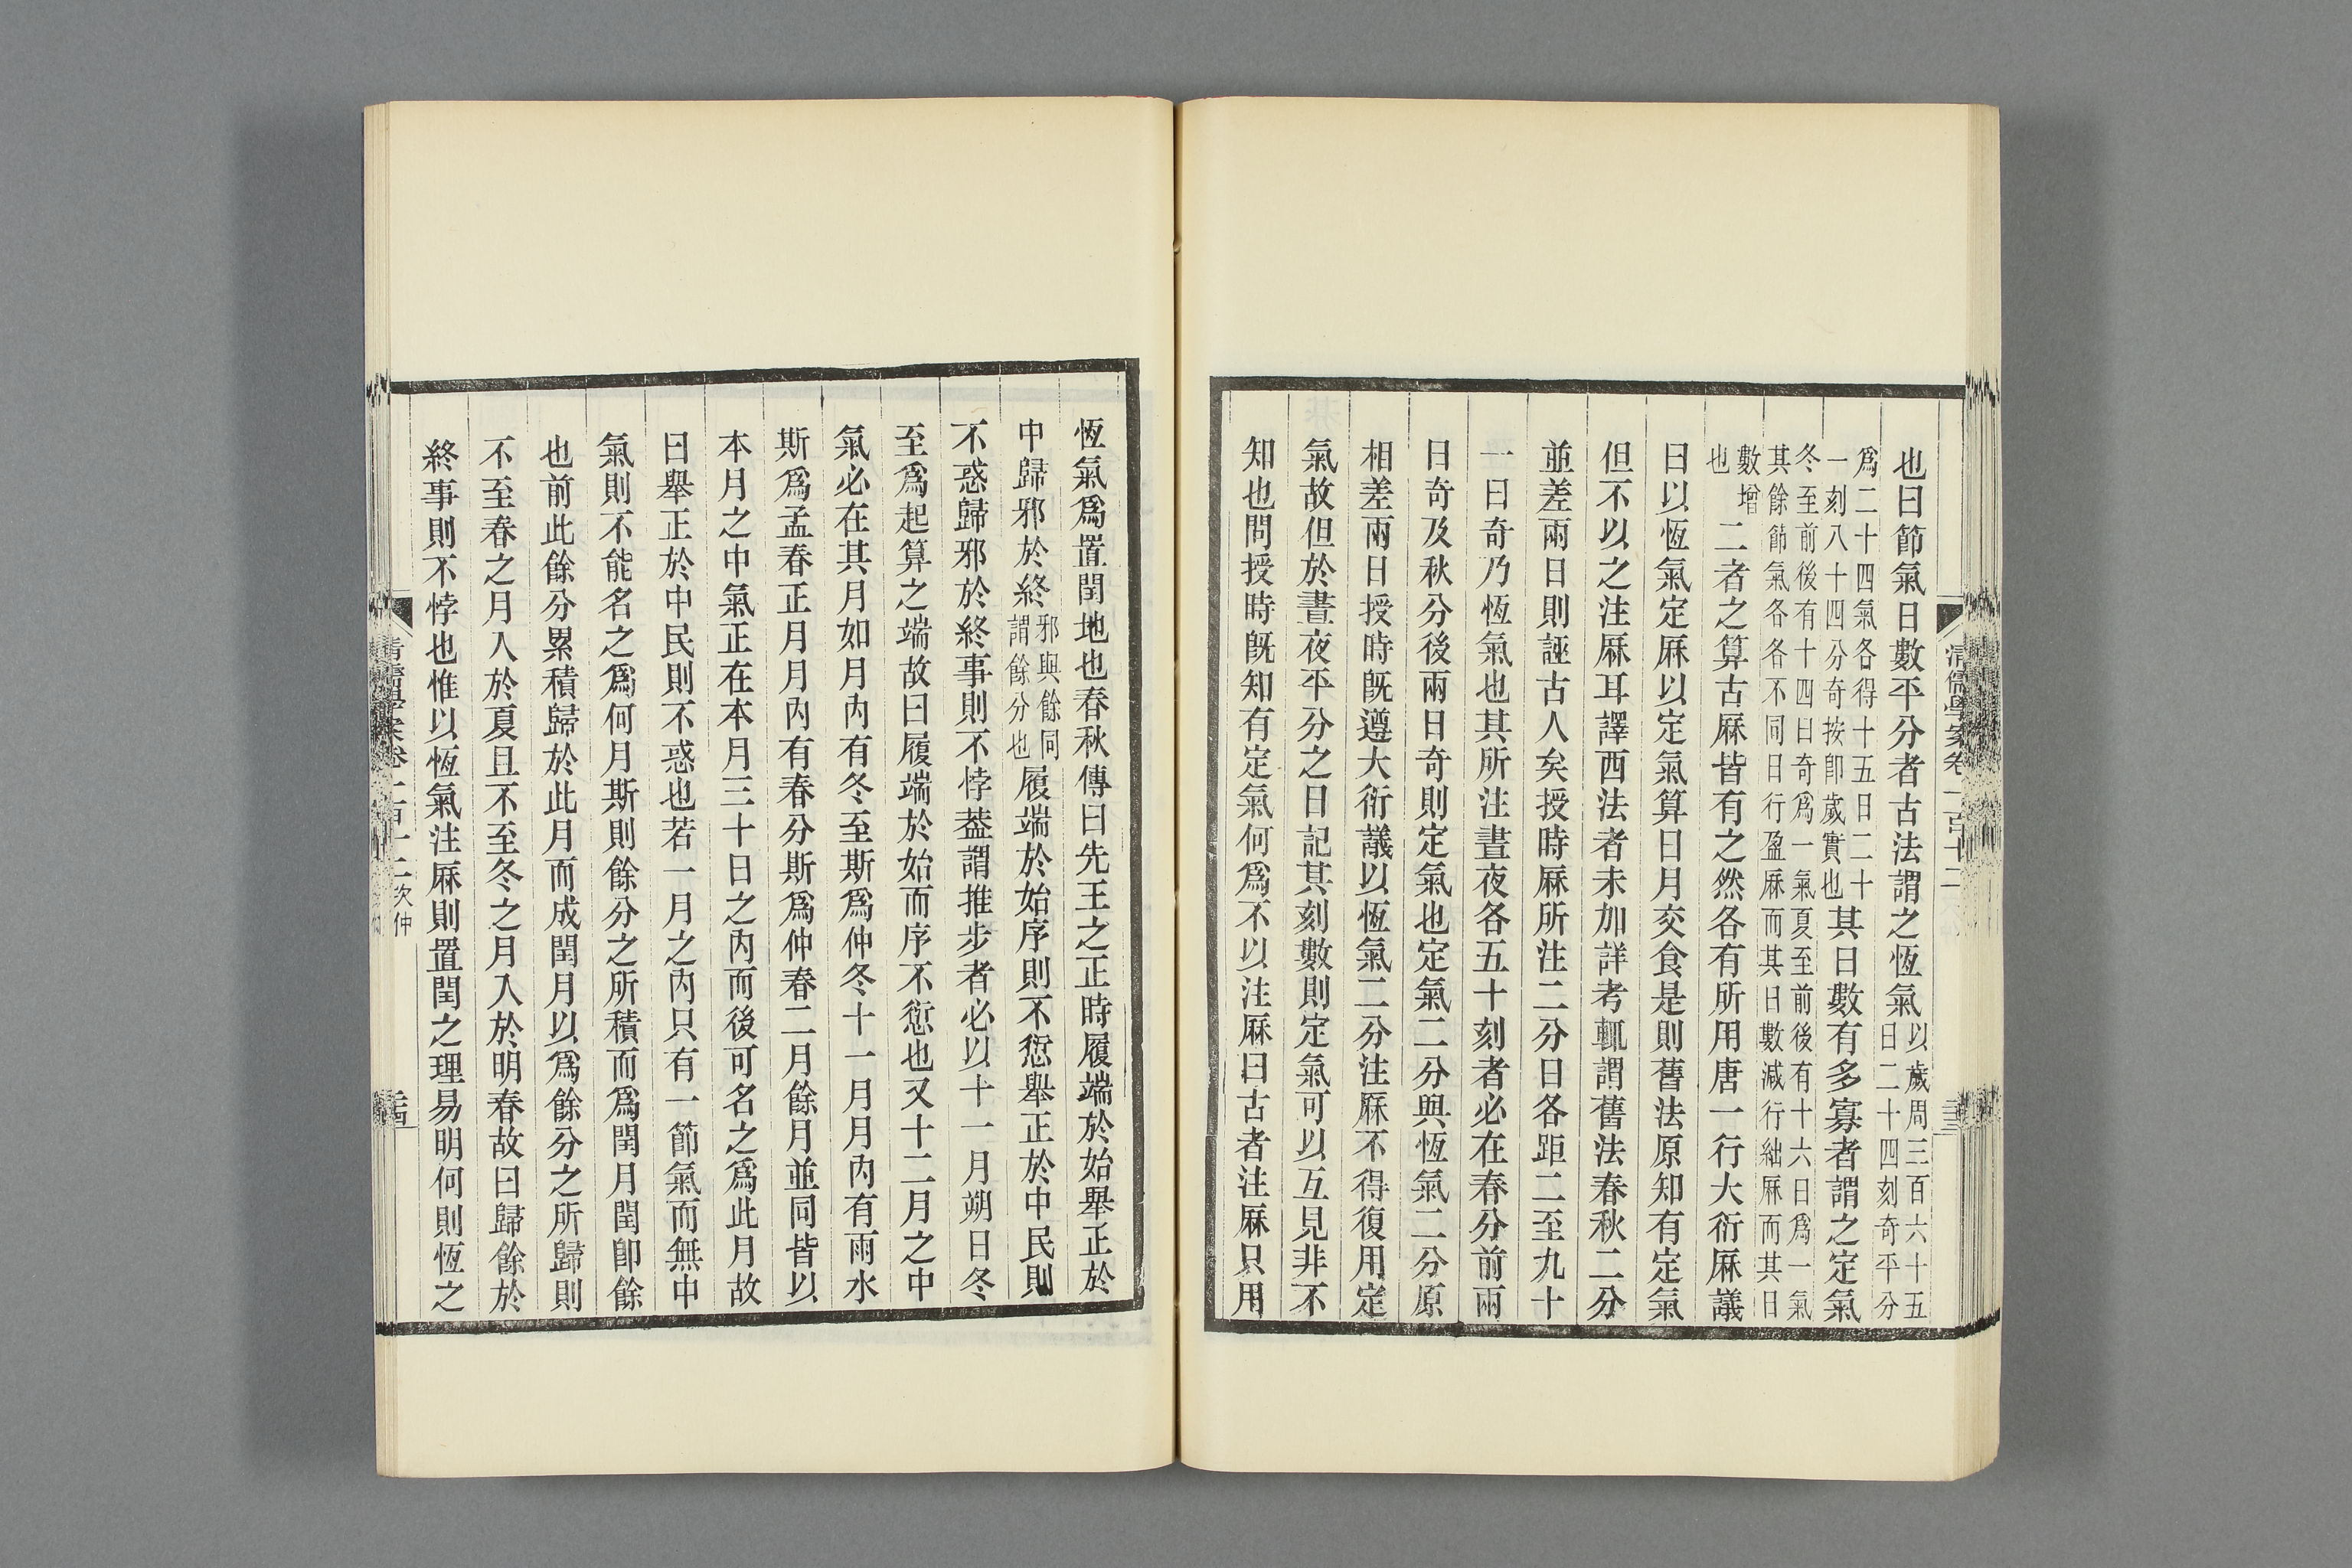 清儒學案卷一百十二
也曰節氣日數平分者古法謂之恆氣以歲周三百六十五日二十四刻奇平分
爲二十四氣各得十五日二十一刻八十四分奇按卽歲實也其日數有多寡者謂之定氣
冬至前後有十四日奇爲一氣夏至前後有十六日爲一氣其餘節氣各各不同日行盈厤而其日數減行絀厤而其日
數增也二者之算古厤皆有之然各有所用唐一行大衍厤議
曰以恆氣定厤以定氣算日月交食是則舊法原知有定氣
但不以之注厤耳譯西法者未加詳考輒謂舊法春秋二分
並差兩日則誣古人矣授時厤所注二分日各距二至九十
一日奇乃恆氣也其所注晝夜各五十刻者必在春分前兩
日奇及秋分後兩日奇則定氣也定氣二分與恆氣二分原
相差兩日授時旣遵大衍議以恆氣二分注厤不得復用定
氣故但於晝夜平分之日記其刻數則定氣可以互見非不
知也問授時旣知有定氣何爲不以注厤曰古者注厤只用
恆氣爲置閏地也春秋傳曰先王之正時履端於始舉正於
中歸邪於終邪與餘同謂餘分也履端於始序則不愆舉正於中民則
不惑歸邪於終事則不悖葢謂推步者必以十一月朔日冬
至爲起算之端故曰履端於始而序不愆也又十二月之中
氣必在其月如月內有冬至斯爲仲冬十一月月內有雨水
斯爲孟春正月月內有春分斯爲仲春二月餘月並同皆以
本月之中氣正在本月三十日之內而後可名之爲此月故
曰舉正於中民則不惑也若一月之內只有一節氣而無中
氣則不能名之爲何月斯則餘分之所積而爲閏月閏卽餘
也前此餘分累積歸於此月而成閏月以爲餘分之所歸則
不至春之月入於夏且不至冬之月入於明春故曰歸餘於
終事則不悖也惟以恆氣注厤則置閏之理易明何則恆之
清儒學案卷一百十二次仲